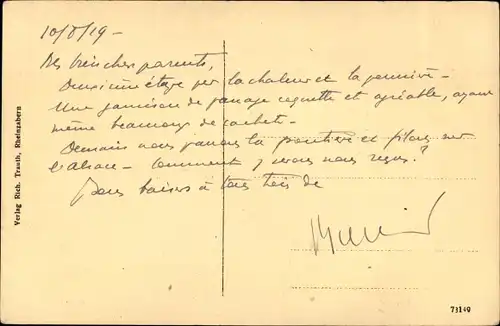 10/8/19 -
Mes bien chers parents,
Deuxième étape par la chaleur et la poussière -
Une garnison de passage coquette et agréable, ayant
même beaucoup de cachet -
Demain nous passons la frontière et filons sur
l'Alsace - Comment y serons nous reçus ?
Bons baisers à tous trois de
Verlag Rich. Trauth, Rheinzabern
73149